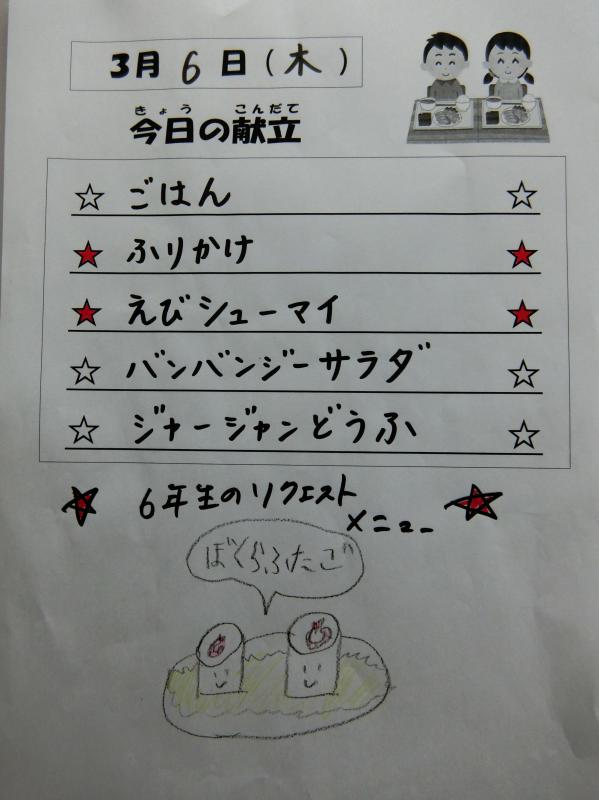 3月6日(木)
きょう こんだて
今日の献立
☆ ごはん ☆
★ ふりかけ ★
★ えびシューマイ ★
☆ バンバンジーサラダ ☆
☆ ジャージャンどうふ ☆
★ 6年生のリクエスト
メニュー ★
ぼくらふたご